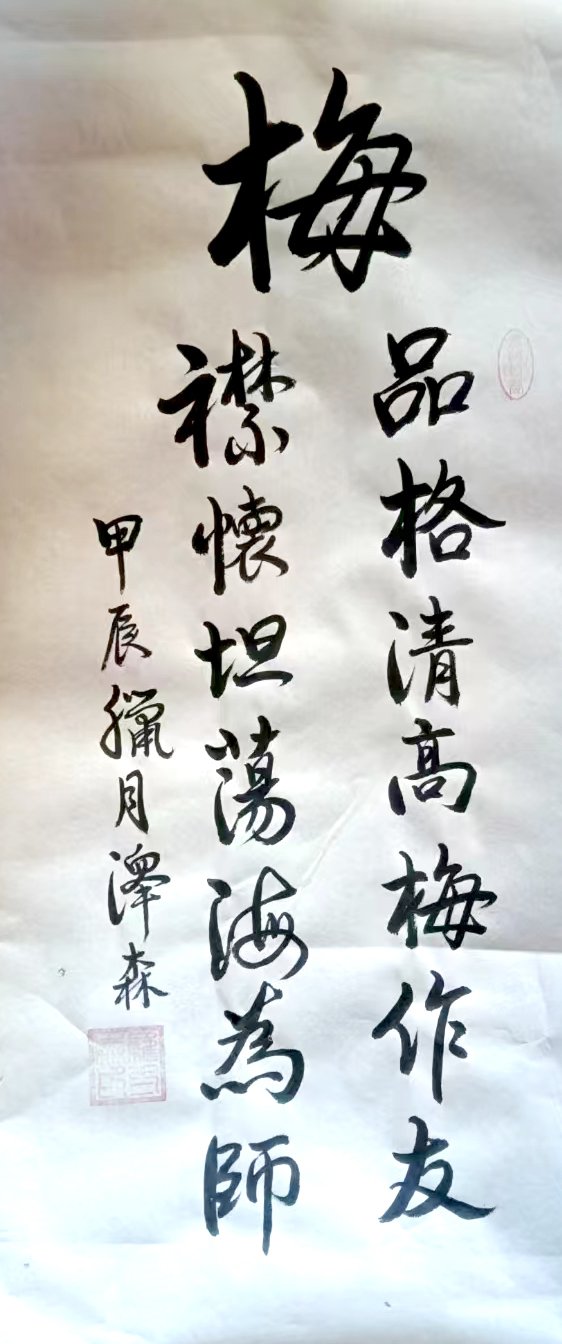 梅
品格清高梅作友
襟懷坦蕩海為師
甲辰臘月澤森